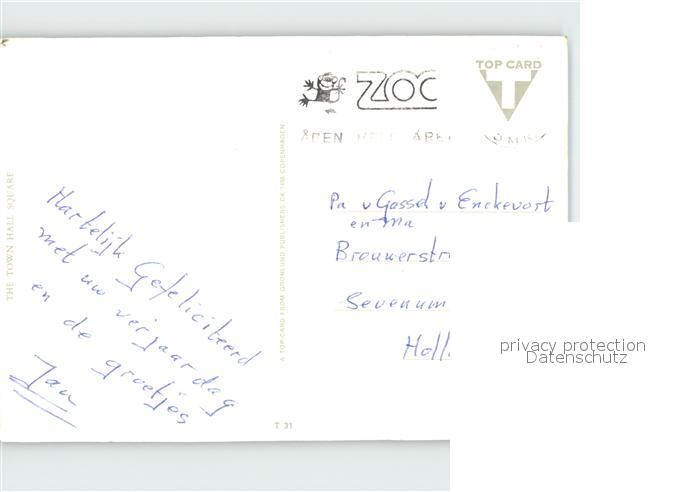 TOP CARD
T
ZOO
ÅPEN HELE ÅRET
THE TOWN HALL SQUARE
A TOP-CARD FROM GRØNLUND PUBLISHERS DK-1188 COPENHAGEN
Hartelijk Gefeliciteerd
met uw verjaardag
en de groetjes
Jan
Pa v Gassel v Enckevort
en Ma
Brouwerstr
Sevenum
Holl
T 31
privacy protection
Datenschutz